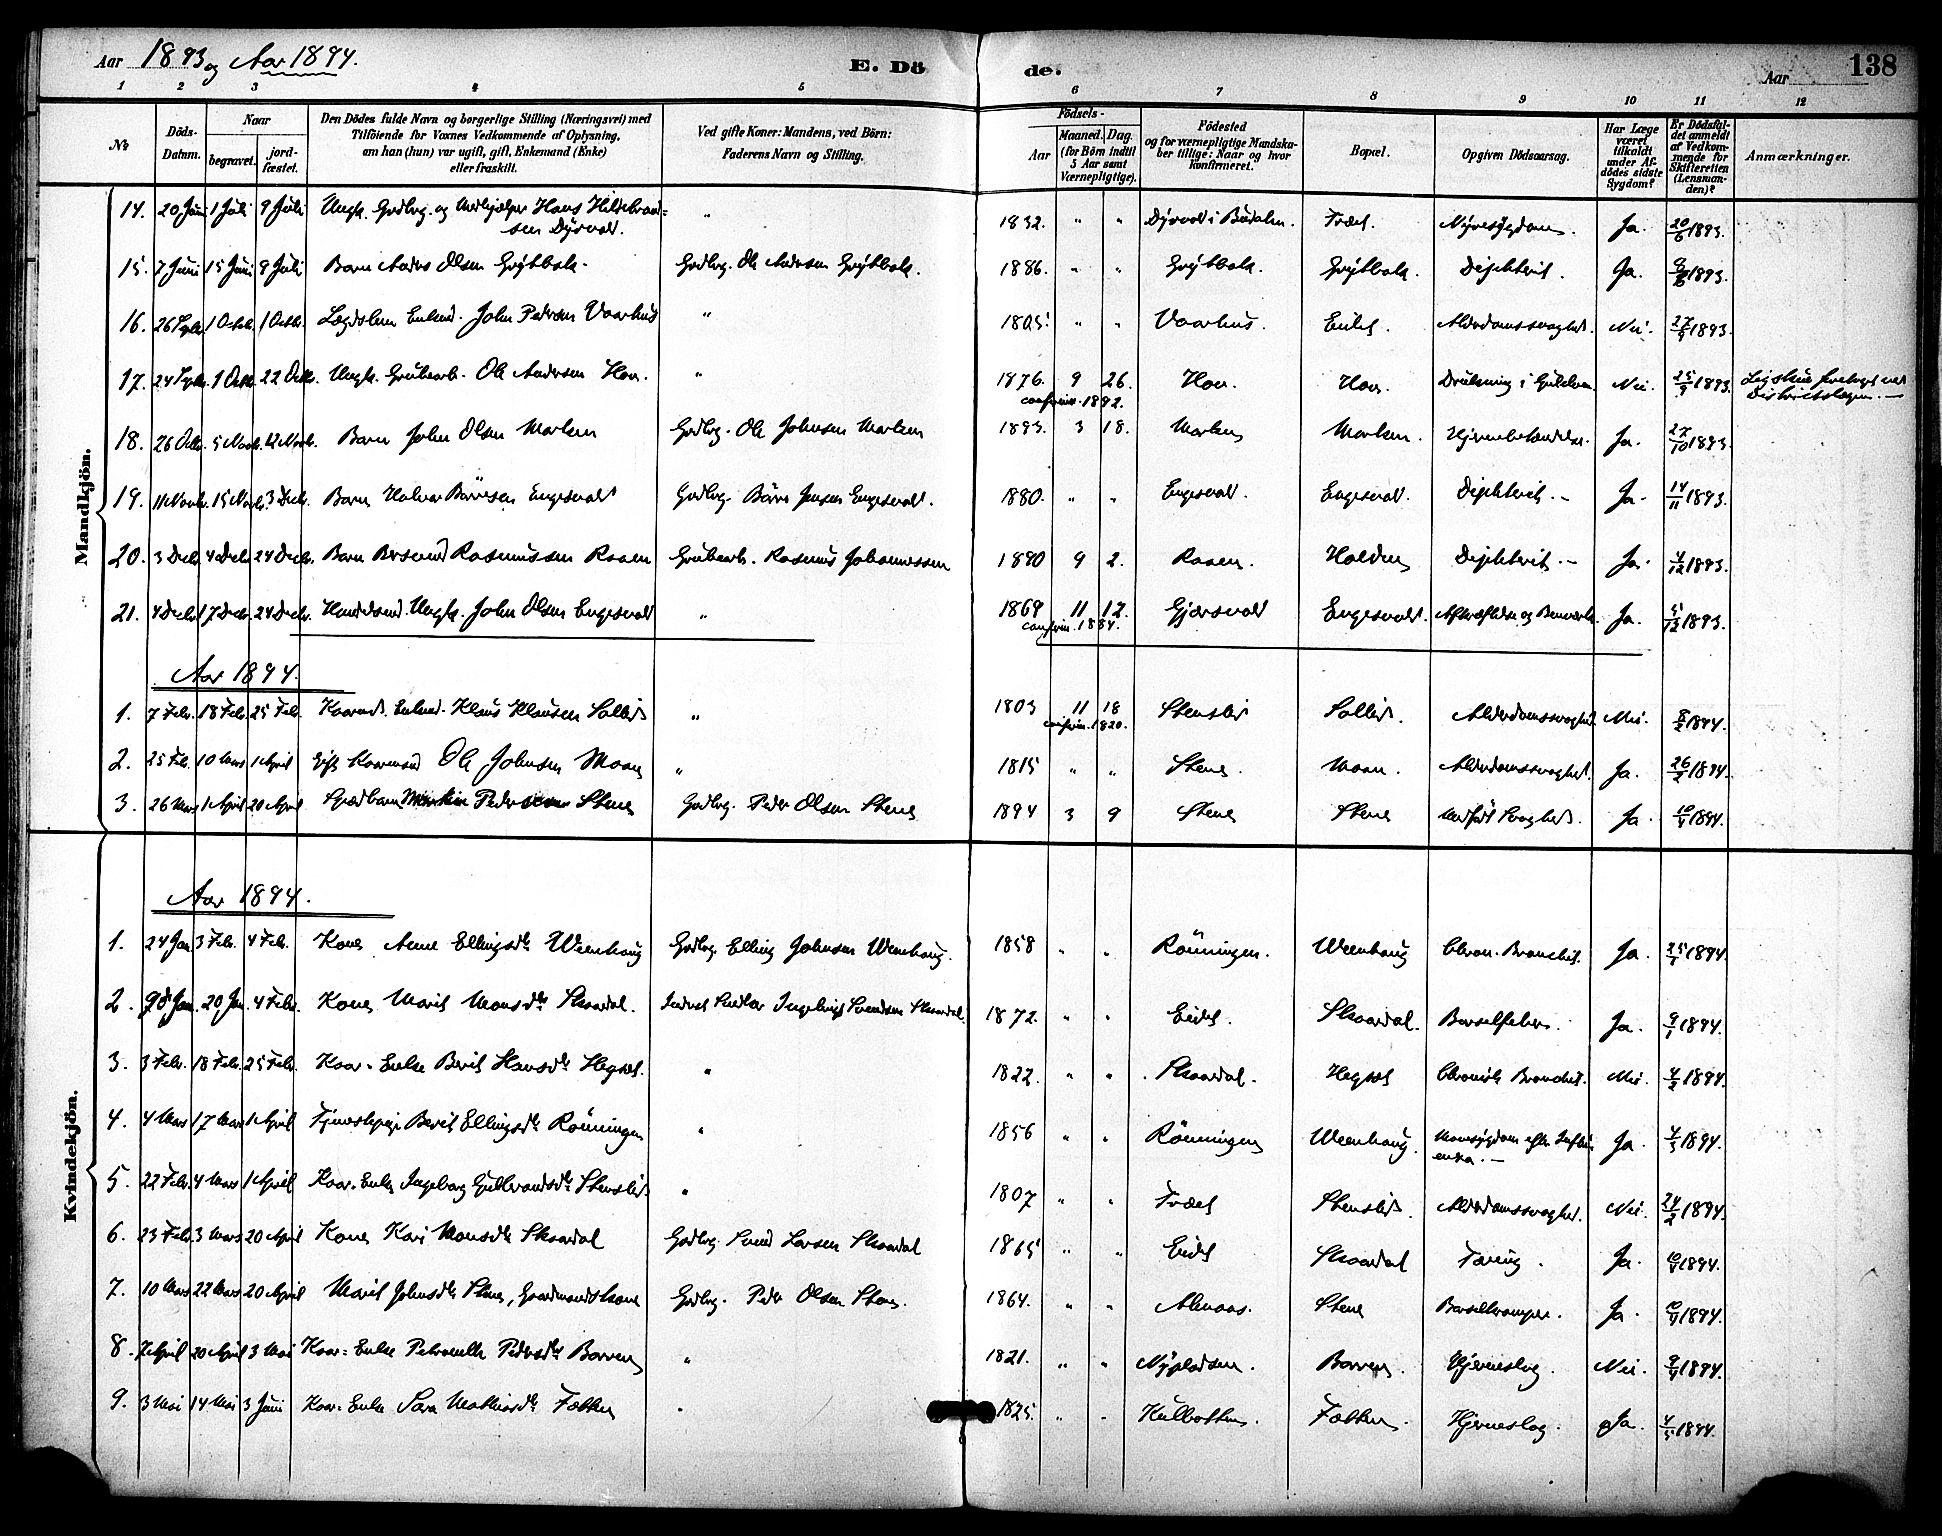 Aar 1893 og Aar 1894.
E. Döde.
Aar
138
1 2 3 4 5 6 7 8 9 10 11 12
No
Döds-Datum.
Naar begravet. jordfæstet.
Den Dödes fulde Navn og borgerlige Stilling (Næringsvei) med Tilföiende for Voxnes Vedkommende af Oplysning, om han (hun) var ugift, gift, Enkemand (Enke) eller fraskilt.
Ved gifte Koner: Mandens, ved Börn: Faderens Navn og Stilling.
Födsels-
Aar
Maaned. Dag. (for Börn indtil 5 Aar samt Værnepligtige).
Födested og for værnepligtige Mandskaber tillige: Naar og hvor konfirmeret.
Bopæl.
Opgiven Dödsaarsag.
Har Læge været tilkaldt under Afdödes sidste Sygdom?
Er Dödsfaldet anmeldt af Vedkommende for Skifteretten (Lensmanden)?
Anmærkninger.
Mandkjön.
14. 20 Juni 1 Juli 9 Juli Ungk. Gdbrg. og Hans Hildebrandsen Dýrvold. " 1832. " " Dyrvold i Budalen. Trøet. Nyresygdom. Ja. 20/6 1893.
15. 7 Juni 15 Juni 9 Juli Barn Anders Olsen Grýtbak. Gdbrg. Ole Andersen Grýtbak. 1886. " " Grýtbak. Grýtbak. Difterit. Ja. 1893.
16. 26 Septbr. 1 Octbr. 1 Octbr. Lægdslem Enkemd. John Pedersen Vaarhus " 1805. " " Vaarhus. Eidet. Alderdomssvaghed. Nei. 27/9 1893.
17. 24 Septbr. 1 Octbr. 22 Octbr. Ungk. Grubearb. Ole Andersen Hov. " 1876. 9 26. Hov. Hov. Drukning i Gulelven Nei. 25/9 1893. Ligskue foretaget ved Distriktslægen. —
confirm. 1892.
18. 26 Octbr. 5 Novbr. 12 Novbr. Barn John Olsen Morken Gdbrg. Ole Johnsen Morken 1893. 3 18. Morken Morken. Hjernebetændelse. Ja. 27/10 1893.
19. 11 Novbr. 15 Novbr. 3 Decbr. Barn Halvor Börresen Engesvold Gdbrg. Börre Jensen Engesvold. 1880. " " Engesvold. Engesvold. Difterit. — Ja. 14/11 1893.
20. 3 Decbr. 4 Decbr. 24 Decbr. Barn Rasmussen Roaen Grubearb. Rasmus Johannessen 1890 9 2. Roaen. Halden Difterit. — Ja. 4/12 1893.
21. 4 Decbr. 17 Decbr. 24 Decbr. Ungk. John Olsen Engesvold " 1869 11 12. Gjersvold Engesvold. og Ja. 5/12 1893.
confirm. 1884.
Aar 1894.
1. 7 Febr. 18 Febr. 25 Febr. Kaarmd. Enkemd. Klaus Klausen Sollid " 1803 11 18 Stenslid Sollid. Alderdomssvaghed Nei. 8/2 1894.
confirm. 1820.
2. 25 Feb. 10 Mars 1 April Gift Kaarmand Ole Johnsen Moan " 1815 " " Stene. Moan. Alderdomssvaghed. Ja. 26/2 1894.
3. 26 Mars 1 April 20 April Spædbarn Martin Pedersen Stene Gdbrg. Peder Olsen Stene 1894 3 9 Stene Stene Medfødt Svaghed. Ja. 10/4 1894.
Kvindekjön.
Aar 1894.
1. 24 Jan. 3 Febr. 4 Febr. Kone Anne Ellingsdtr. Weenhaug Gdbrg. Elling Johnsen Weenhaug. 1858 " " Rönningen. Weenhaug Chron. Bronchit. Ja. 25/1 1894.
2. 9 Jan. 20 Jan. 4 Febr. Kone Marit Monsdtr. Skaardal. Ingebrigt Svendsen Skaardal. 1872. " " Eidet. Skaardal. Barselfeber. Ja. 9/1 1894.
3. 3 Febr. 18 Febr. 25 Febr. Kaar-Enke Berit Hansdtr. Hegset. " 1822. " " Skaardal. Hegset Chronisk Bronchit. Nei. 4/2 1894.
4. 4 Mars 17 Mars 1 April Tjenestepige Berit Ellingsdtr. Rönningen " 1856 " " Rönningen Weenhaug. efter Influenza. — Ja. 4/3 1894.
5. 22 Febr. 4 Mars 1 April Kaar-Enke Ingeborg Gulbrandsdtr. Stenslid " 1807 " " Trøet Stenslid. Alderdomssvaghed. Nei. 24/2 1894.
6. 23 Febr. 3 Mars 20 April Kone Kari Monsdtr. Skaardal Gdbrg. Svend Larsen Skaardal 1865 " " Eidet Skaardal Tæring. Ja. 10/4 1894.
7. 10 Mars 22 Mars 20 April Marit Johnsdtr. Stene, Gaardmandskone Gdbrg. Peder Olsen Stene. 1864. " " Almaas. Stene Barselkrampe. Ja. 10/4 1894.
8. 7 April 20 April 3 Mai Kaar-Enke Petronelle Pedersdtr. Borren " 1821. " " Nýpladsen. Borren Hjerneslag. Nei. 9/4 1894.
9. 3 Mai 14 Mai 3 Juni Kaar-Enke Sara Mathiasdtr. Fætten " 1825. " " Kulbotten. Fætten. Hjerneslag. Ja. 4/5 1894.